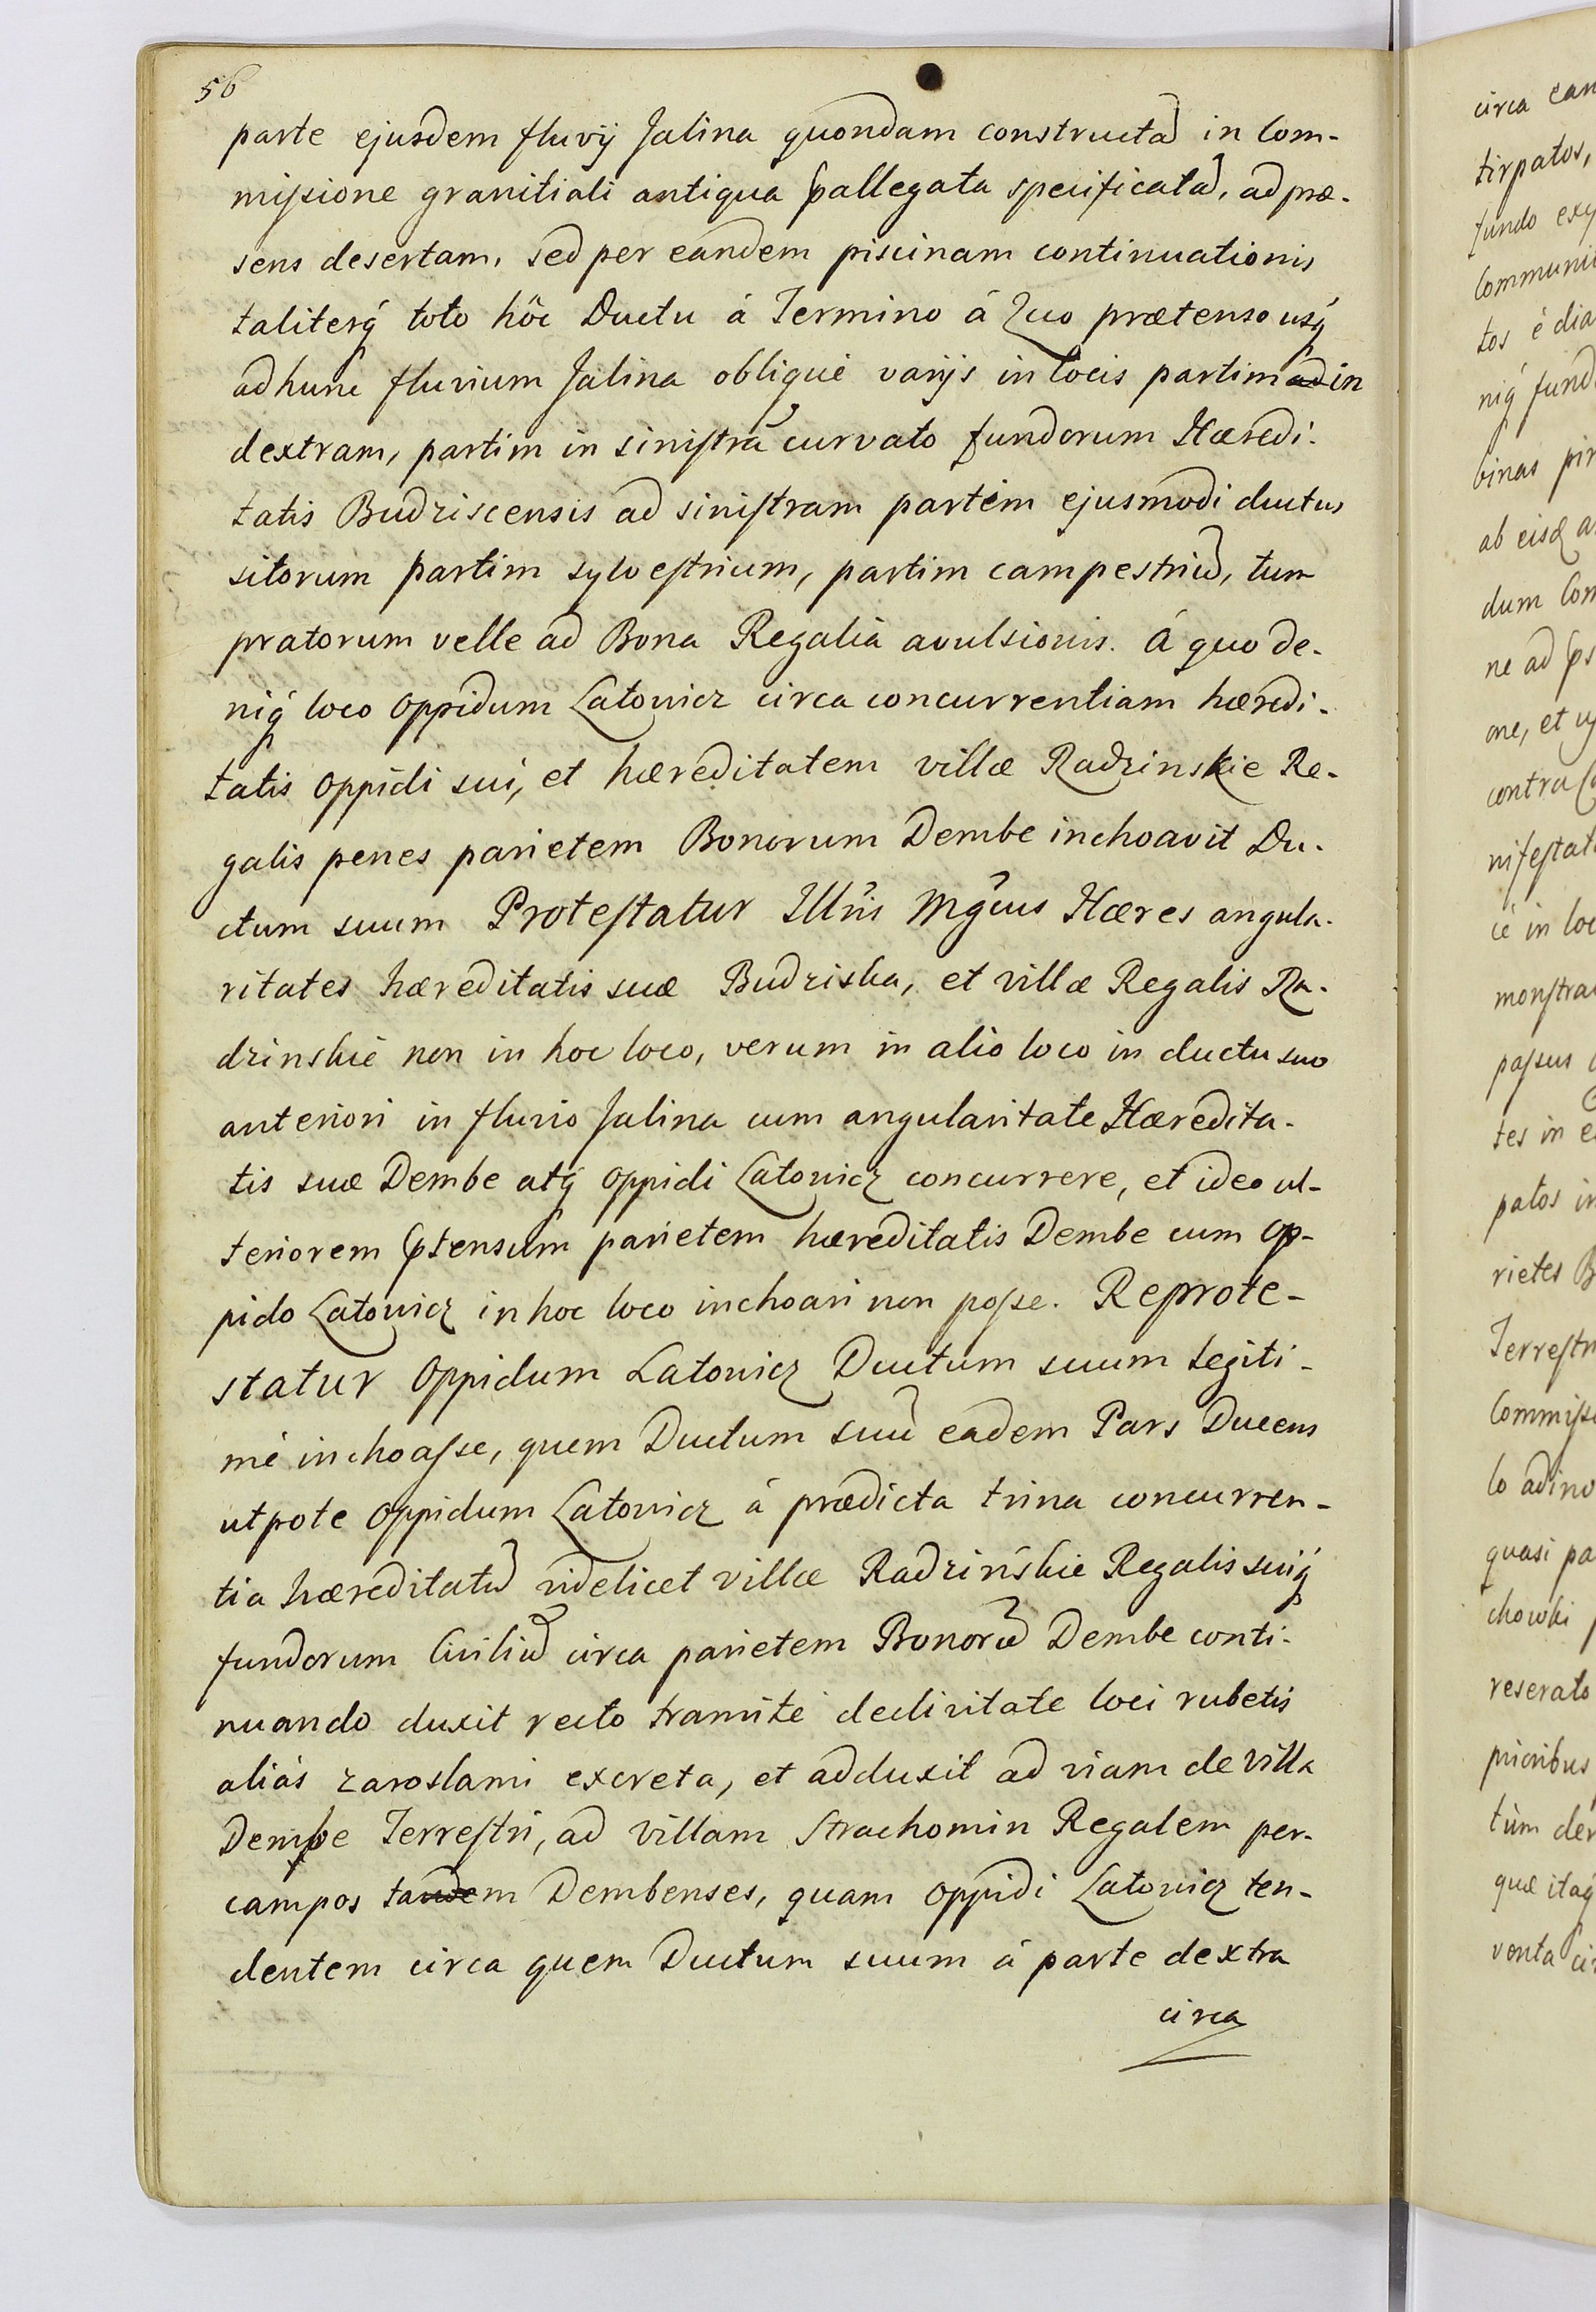 56
parte ejusdem fluvij Jalina quondam constructā in Com-
missione granitiali antiqua pallegata specificatā, ad præ-
sens desertam, sed per eandem piscinam continuationis
taliterq́ toto hôc Ductu á Termino á Quo prætenso usq́
ad hunc fluvium Jalina obliquè varijs in locis partim ad in
dextram, partim in sinistrā curvato fundorum Hæredi-
tatis Budziscensis ad sinistram partem ejusmodi ductus
sitorum partim sylvestrium, partim campestriū, tum
pratorum velle ad Bona Regalia avulsionis. á quo de-
niq́ loco oppidum Latowicz circa concurrentiam hæredi-
tatis oppidi sui, et hæreditatem villæ Radzinskie Re-
galis penes parietem Bonorum Dembe inchoavit Du-
ctum suum Protestatur Illrĩs Mgc̃us Hæres angula-
ritates hæreditatis suæ Budziska, et villæ Regalis Ra-
dzinskie non in hoc loco, verum in alio loco in ductu suo
anteriori in fluvio Jalina cum angularitate Hæredita-
tis suæ Dembe atq́ oppidi Latowicz concurrere, et ideo ul-
teriorem ptensum parietem hæreditatis Dembe cum Op-
pido Latowicz in hoc loco inchoari non posse. Reprote-
statur Oppidum Latowicz Ductum suum legiti-
mè inchoasse, quem Ductum suū eadem Pars Ducens
utpote oppidum Latowicz á prædicta trina concurren-
tia hæreditatū videlicet villæ Radzińskie Regalis suiq́
fundorum Civiliū circa parietem Bonorū Dembe conti-
nuando duxit recto tramite declivitate loci rubetis
aliás zaroslami excreta, et adduxit ad viam de Villa
Dembe Terrestri, ad villam Strachomin Regalem per
campos tam Dembenses, quam oppidi Latowicz ten-
dentem circa quem Ductum suum á parte dextra
circa
circa
tirpatos,
fundo
tos é
niq́
binas
ab
dum
ne ad
one, et
contra
in
passus
tes in
patos
rietes
lo
quasi
reserato
quæ